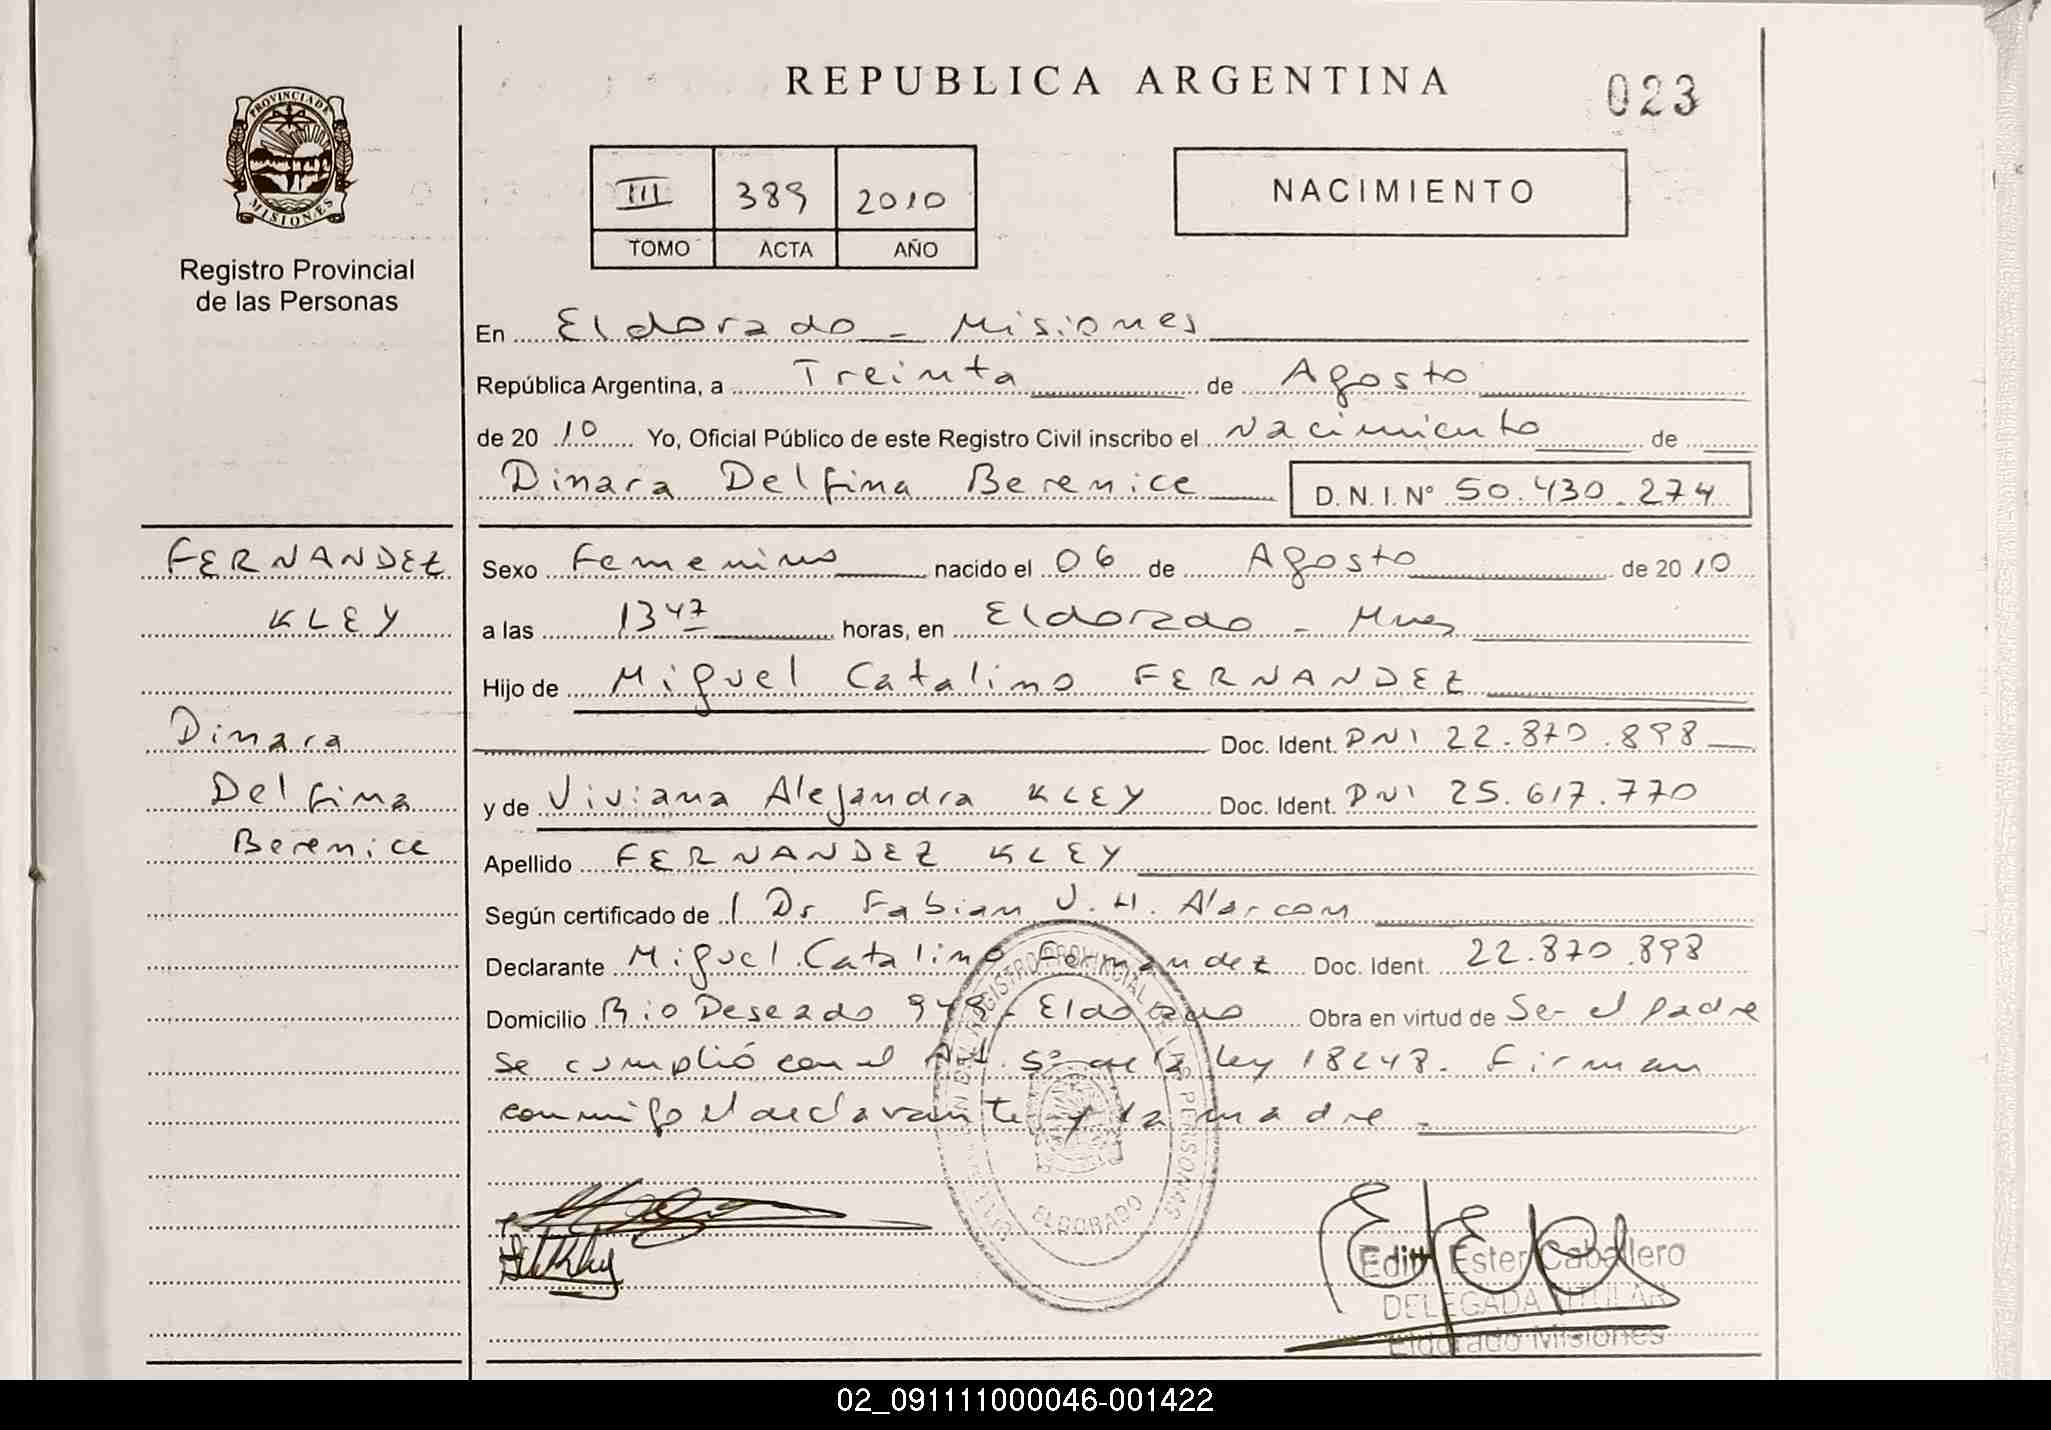 REPUBLICA ARGENTINA
023
PROVINCIA DE
MISIONES
Registro Provincial
de las Personas
III 389 2010
TOMO ACTA AÑO
NACIMIENTO
En Eldorado - Misiones
República Argentina, a Treinta de Agosto
de 2010 Yo, Oficial Público de este Registro Civil inscribo el Nacimiento de
Dinara Delfina Berenice D.N.I. Nº 50.430.274
FERNANDEZ
KLEY
Dinara
Delfina
Berenice
Sexo Femenino nacido el 06 de Agosto de 2010
a las 13 47 horas, en Eldorado - Mnes
Hijo de Miguel Catalino FERNANDEZ
Doc. Ident. DNI 22.870.898
y de Viviana Alejandra KLEY Doc. Ident. DNI 25.617.770
Apellido FERNANDEZ KLEY
Según certificado de Dr Fabian J. H. Alarcon
Declarante Miguel Catalino Fernandez Doc. Ident. 22.870.898
Domicilio Rio Deseado 949 - Eldorado Obra en virtud de Ser el padre
Se cumplió con el Art. 5º de la ley 18248. Firman
conmigo el declarante y la madre
REGISTRO PROVINCIAL DE LAS PERSONAS
ELDORADO
Edith Ester Caballero
DELEGADA TITULAR
Eldorado Misiones
02_091111000046-001422